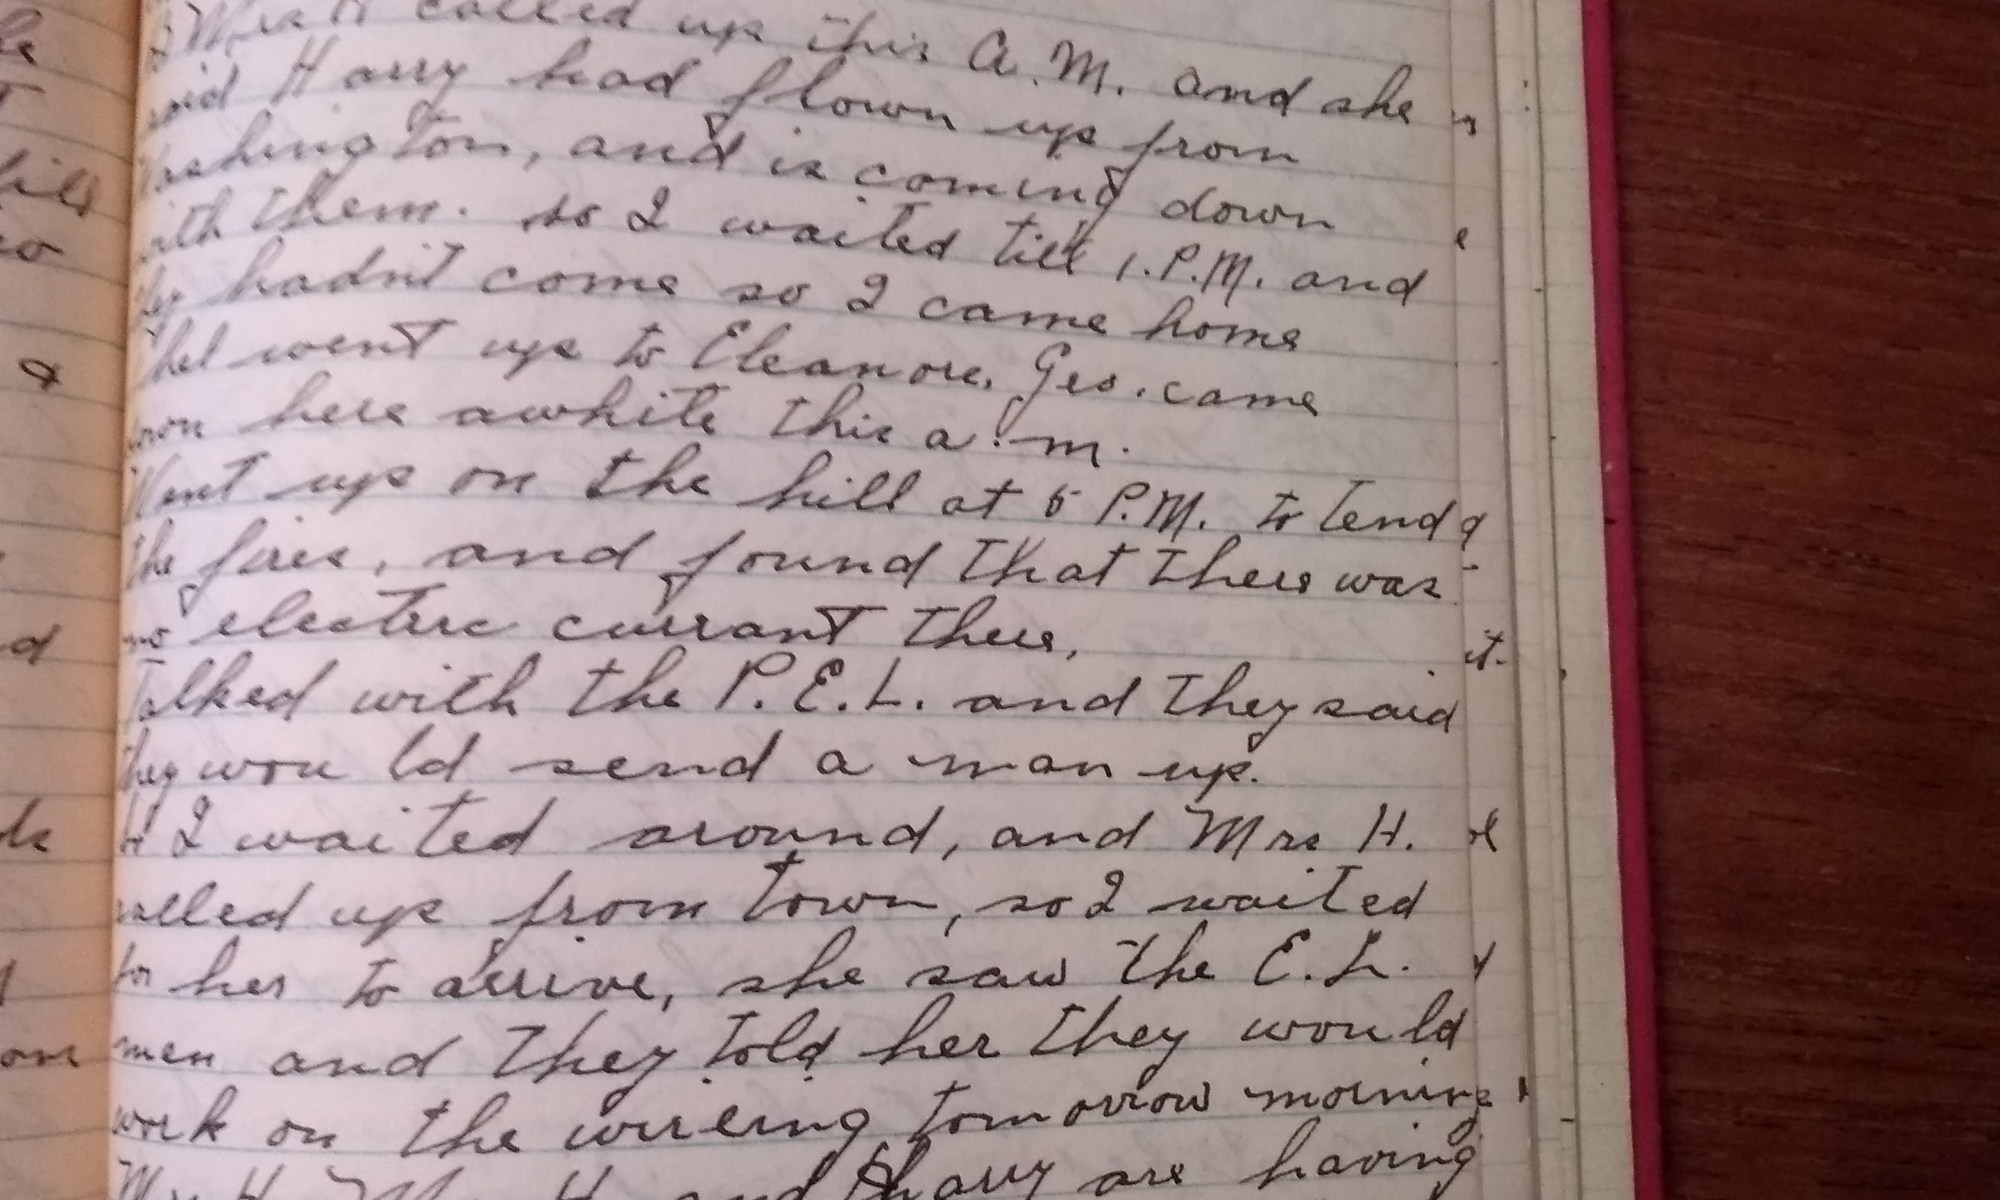 Mrs H called up this A.M. and she
said Harry had flown up from
Washington, and is coming down
with them. so I waited till 1.P.M. and
they hadn't come so I came home
Ethel went up to Eleanore. Geo. came
down here awhile this a.m.
Went up on the hill at 5 P.M. to tend
the fires, and found that there was
no electric currant there,
Talked with the P.E.L. and they said
they would send a man up.
I waited around, and Mrs H.
called up from town, so I waited
for her to arrive, she saw the E.L.
men and they told her they would
work on the wireing tomorrow morning
H. and Harry are having